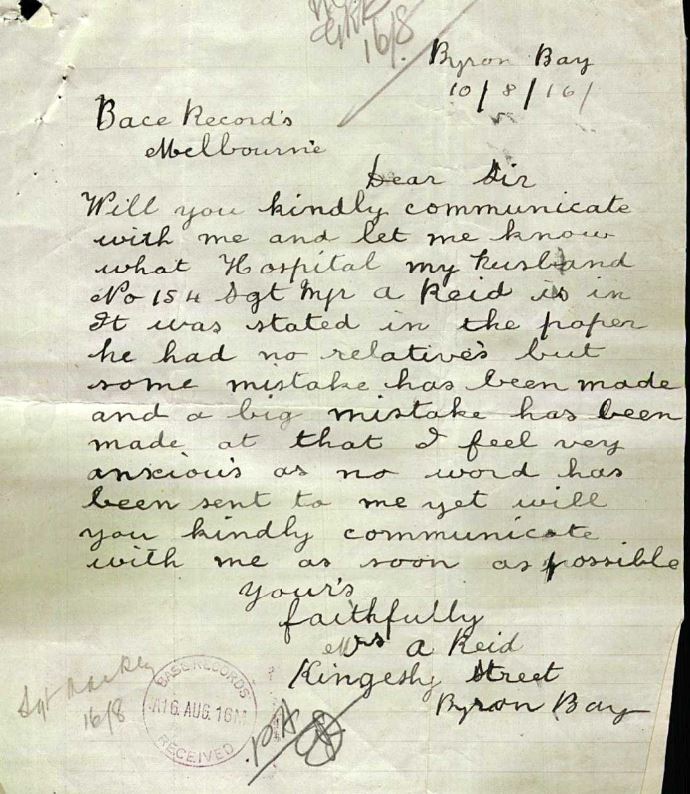 16/8.
Byron Bay
10/8/16/
Bace Record's
Melbourne
Dear Sir
Will you kindly communicate
with me and let me know
what Hospital my husband
No 154 Sgt Mjr A Reid is in
It was stated in the paper
he had no relative's but
some mistake has been made
and a big mistake has been
made at that I feel very
anxcious as no word has
been sent to me yet will
you kindly communicate
with me as soon as possible
your's
faithfully
Mrs A Reid
Street
Byron Bay
Sgt
16/8
BASE RECORDS
A16 AUG. 16M
RECEIVED